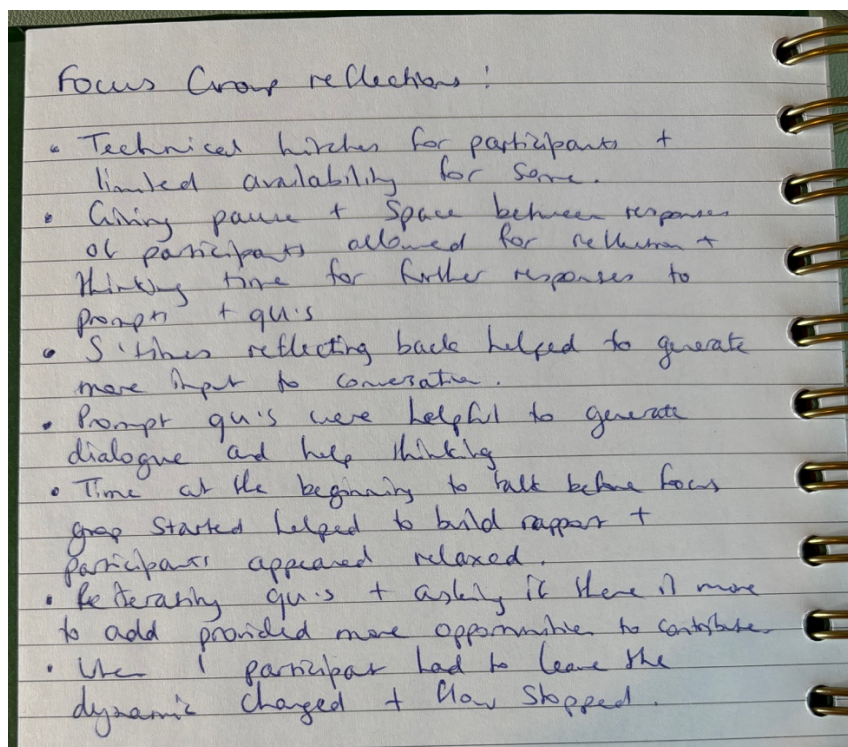 Focus Group reflections:
• Technical hitches for participants +
limited availability for some.
• Giving pause + space between responses
of participants allowed for reflection +
thinking time for further responses to
prompts + qu's
• S'times reflecting back helped to generate
more input to conversation.
• Prompt qu's were helpful to generate
dialogue and help thinking
• Time at the beginning to talk before focus
group started helped to build rapport +
participants appeared relaxed.
• Reiterating qu's + asking if there is more
to add provided more opportunities to contribute.
• When 1 participant had to leave the
dynamic changed + flow stopped.